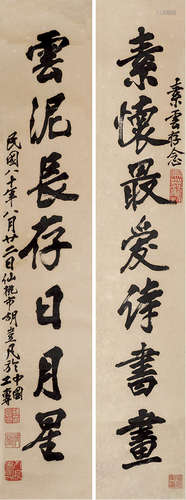 素雲存念
素懷最愛詩書畫
雲泥長存日月星
民國八十年八月廿二日仙桃市胡豈凡於中國